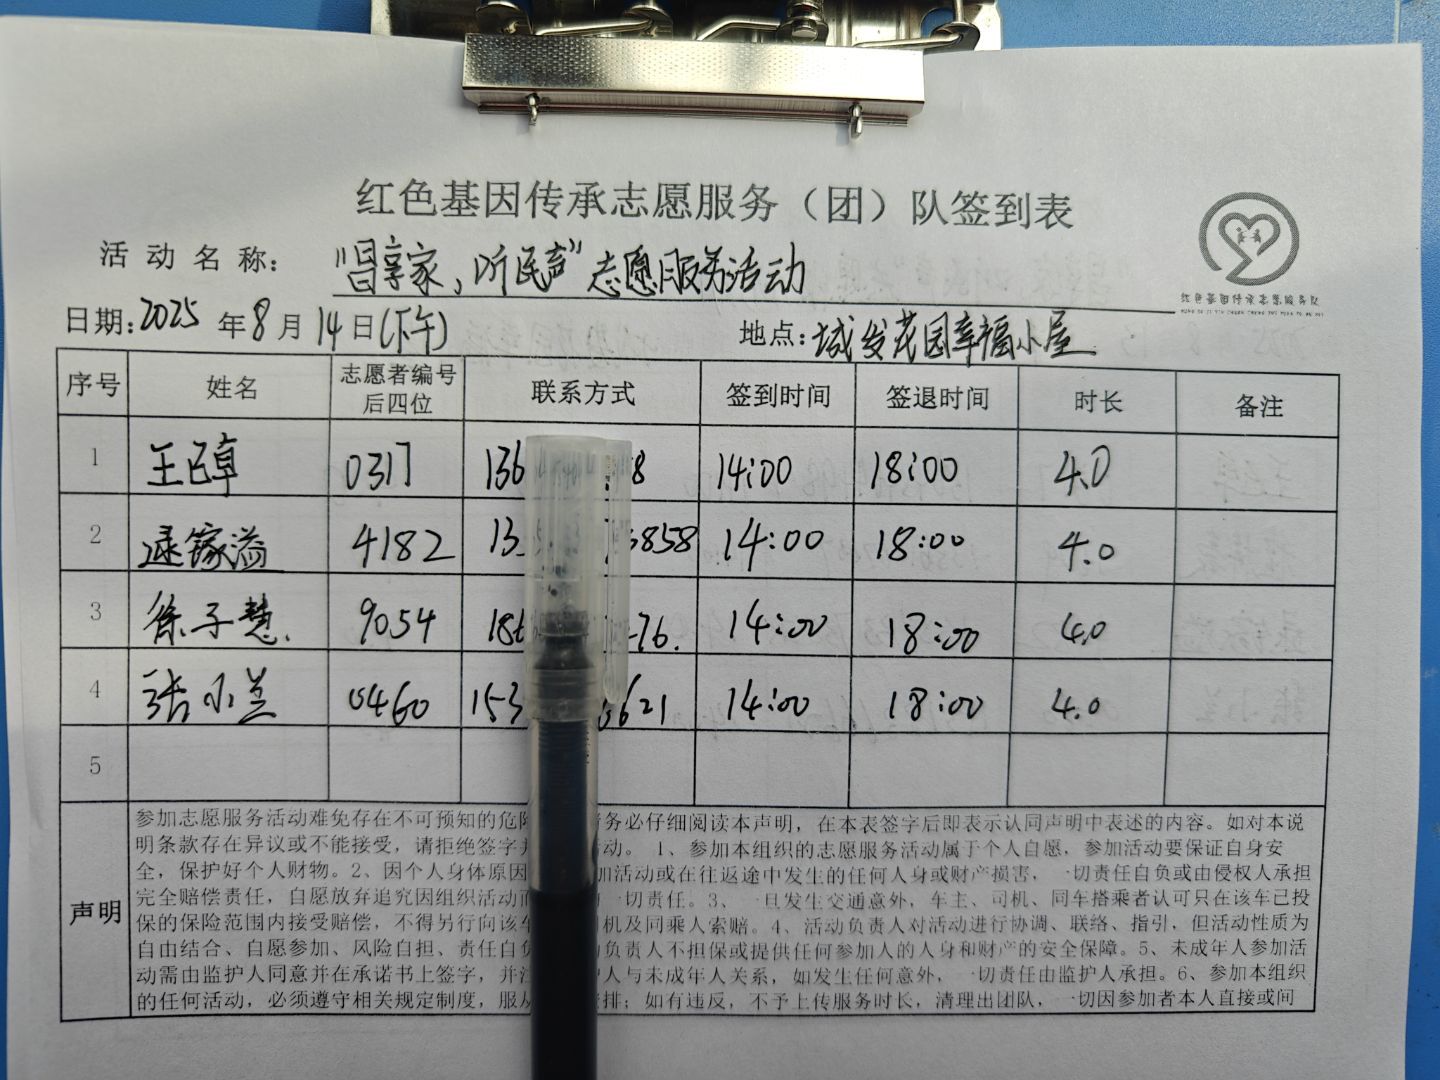 红色基因传承志愿服务（团）队签到表
活动名称：“昌享家，听民声”志愿服务活动
红色基因传承志愿服务队
日期：2025年8月14日(下午) 地点：城发花园幸福小屋
序号 姓名 志愿者编号后四位 联系方式 签到时间 签退时间 时长 备注
1 王 卓 0317 136 8 14:00 18:00 4.0
2 逯镓溢 4182 13 3858 14:00 18:00 4.0
3 徐子慧. 9054 186 76. 14:00 18:00 4.0
4 张小兰 0460 153 6621 14:00 18:00 4.0
5
声明
参加志愿服务活动难免存在不可预知的危险 务必仔细阅读本声明，在本表签字后即表示认同声明中表述的内容。如对本说
明条款存在异议或不能接受，请拒绝签字并 活动。 1、参加本组织的志愿服务活动属于个人自愿，参加活动要保证自身安
全，保护好个人财物。2、因个人身体原因 加活动或在往返途中发生的任何人身或财产损害，一切责任自负或由侵权人承担
完全赔偿责任，自愿放弃追究因组织活动而 一切责任。3、一旦发生交通意外，车主、司机、同车搭乘者认可只在该车已投
保的保险范围内接受赔偿，不得另行向该车 机及同乘人索赔。4、活动负责人对活动进行协调、联络、指引，但活动性质为
自由结合、自愿参加、风险自担、责任自负 负责人不担保或提供任何参加人的人身和财产的安全保障。5、未成年人参加活
动需由监护人同意并在承诺书上签字，并注 人与未成年人关系，如发生任何意外，一切责任由监护人承担。6、参加本组织
的任何活动，必须遵守相关规定制度，服从 排；如有违反，不予上传服务时长，清理出团队，一切因参加者本人直接或间